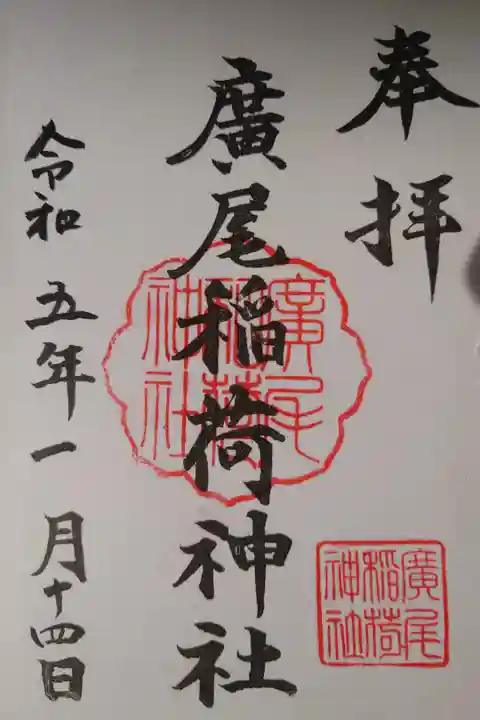 奉拝
廣尾稲荷神社
令和五年一月十四日
廣尾
稲荷
神社
廣尾
稲荷
神社